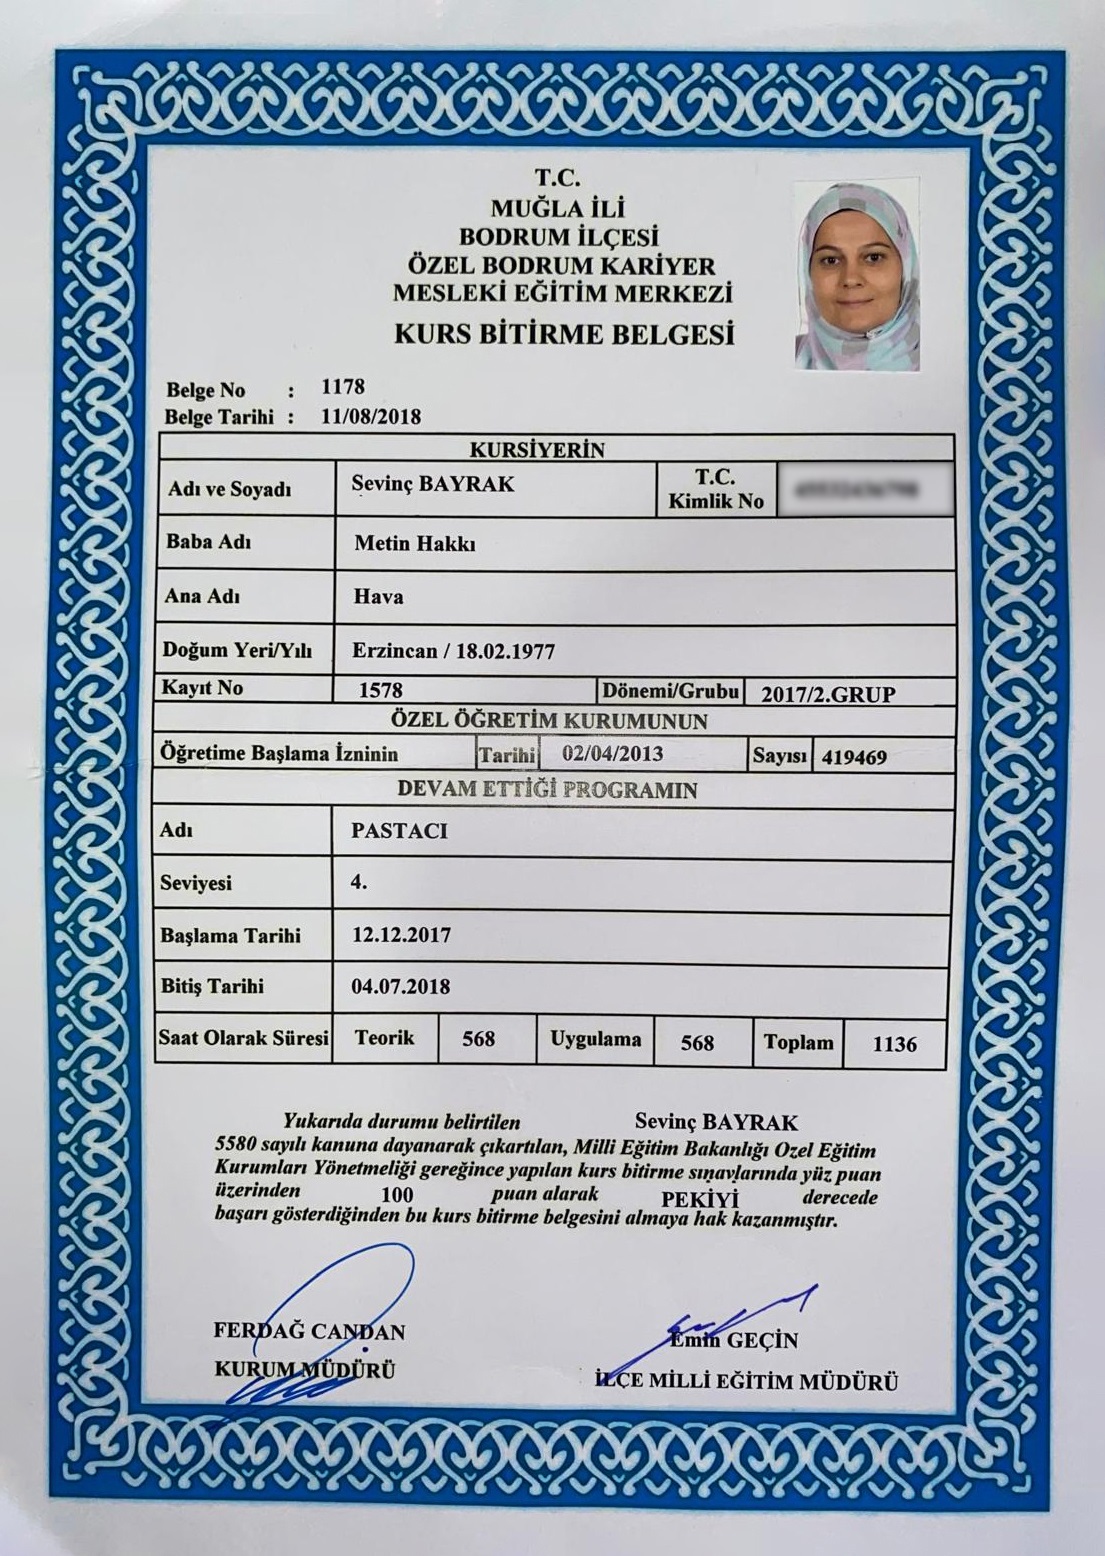 T.C.
MUĞLA İLİ
BODRUM İLÇESİ
ÖZEL BODRUM KARİYER
MESLEKİ EĞİTİM MERKEZİ
KURS BİTİRME BELGESİ
Belge No : 1178
Belge Tarihi : 11/08/2018
KURSİYERİN
Adı ve Soyadı Sevinç BAYRAK T.C. Kimlik No
Baba Adı Metin Hakkı
Ana Adı Hava
Doğum Yeri/Yılı Erzincan / 18.02.1977
Kayıt No 1578 Dönemi/Grubu 2017/2.GRUP
ÖZEL ÖĞRETİM KURUMUNUN
Öğretime Başlama İzninin Tarihi 02/04/2013 Sayısı 419469
DEVAM ETTİĞİ PROGRAMIN
Adı PASTACI
Seviyesi 4.
Başlama Tarihi 12.12.2017
Bitiş Tarihi 04.07.2018
Saat Olarak Süresi Teorik 568 Uygulama 568 Toplam 1136
Yukarıda durumu belirtilen Sevinç BAYRAK
5580 sayılı kanuna dayanarak çıkartılan, Milli Eğitim Bakanlığı Ozel Eğitim
Kurumları Yönetmeliği gereğince yapılan kurs bitirme sınavlarında yüz puan
üzerinden 100 puan alarak PEKİYİ derecede
başarı gösterdiğinden bu kurs bitirme belgesini almaya hak kazanmıştır.
FERDAĞ CANDAN
KURUM MÜDÜRÜ
Emin GEÇİN
İLÇE MİLLİ EĞİTİM MÜDÜRÜ